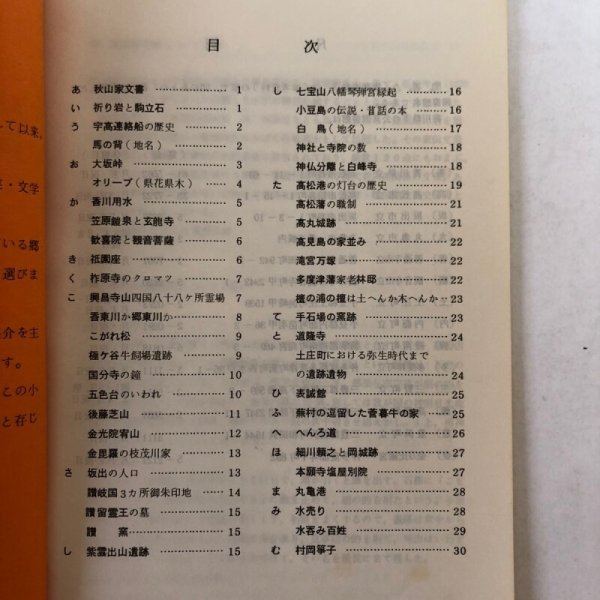 目次
あ 秋山家文書 1
い 祈り岩と駒立石 1
う 宇高連絡船の歴史 2
馬の背(地名) 2
お 大坂峠 3
オリーブ(県花県木) 4
か 香川用水 5
笠原鎧泉と玄能寺 6
歓喜院と観音菩薩 6
き 祗園座 6
く 柞原寺のクロマツ 7
こ 興昌寺山四国八十八ヶ所霊場 7
吾東川か郷東川か 8
こがれ松 9
極ケ谷牛飼場遺跡 9
国分寺の鐘 10
五色台のいわれ 10
後藤芝山 11
金光院宥山 12
金毘羅の枝茂川家 13
さ 坂出の人口 13
讃岐国3カ所御朱印地 14
讃留霊王の墓 15
讃窯 15
し 紫雲出山遺跡 15
し 七宝山八幡琴弾宮縁起 16
小豆島の伝説・昔話の本 16
白鳥(地名) 17
神社と寺院の数 18
神仏分離と白峰寺 18
た 高松港の灯台の歴史 19
高松藩の職制 21
高丸城跡 21
高見島の家並み 22
滝宮万塚 22
多度津藩家老林邸 22
檀の浦の檀は土へんか木へんか 23
て 手石場の窯跡 23
と 道隆寺 24
土庄町における弥生時代まで
の遺跡遺物 24
ひ 表誠館 25
ふ 蕪村の逗留した菅暮牛の家 25
へ へんろ道 26
ほ 細川頼之と岡城跡 27
本願寺塩屋別院 27
ま 丸亀港 28
み 水売り 28
水呑み百姓 29
む 村岡箏子 30
して以来、
・文学
いる郷
選びま
介を主
す。
この小
と存じ